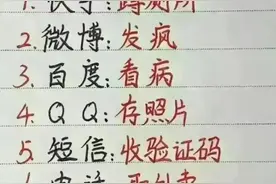 2.微博:发疯
3.百度:看病
4.QQ:存照片
5.短信:收验证码